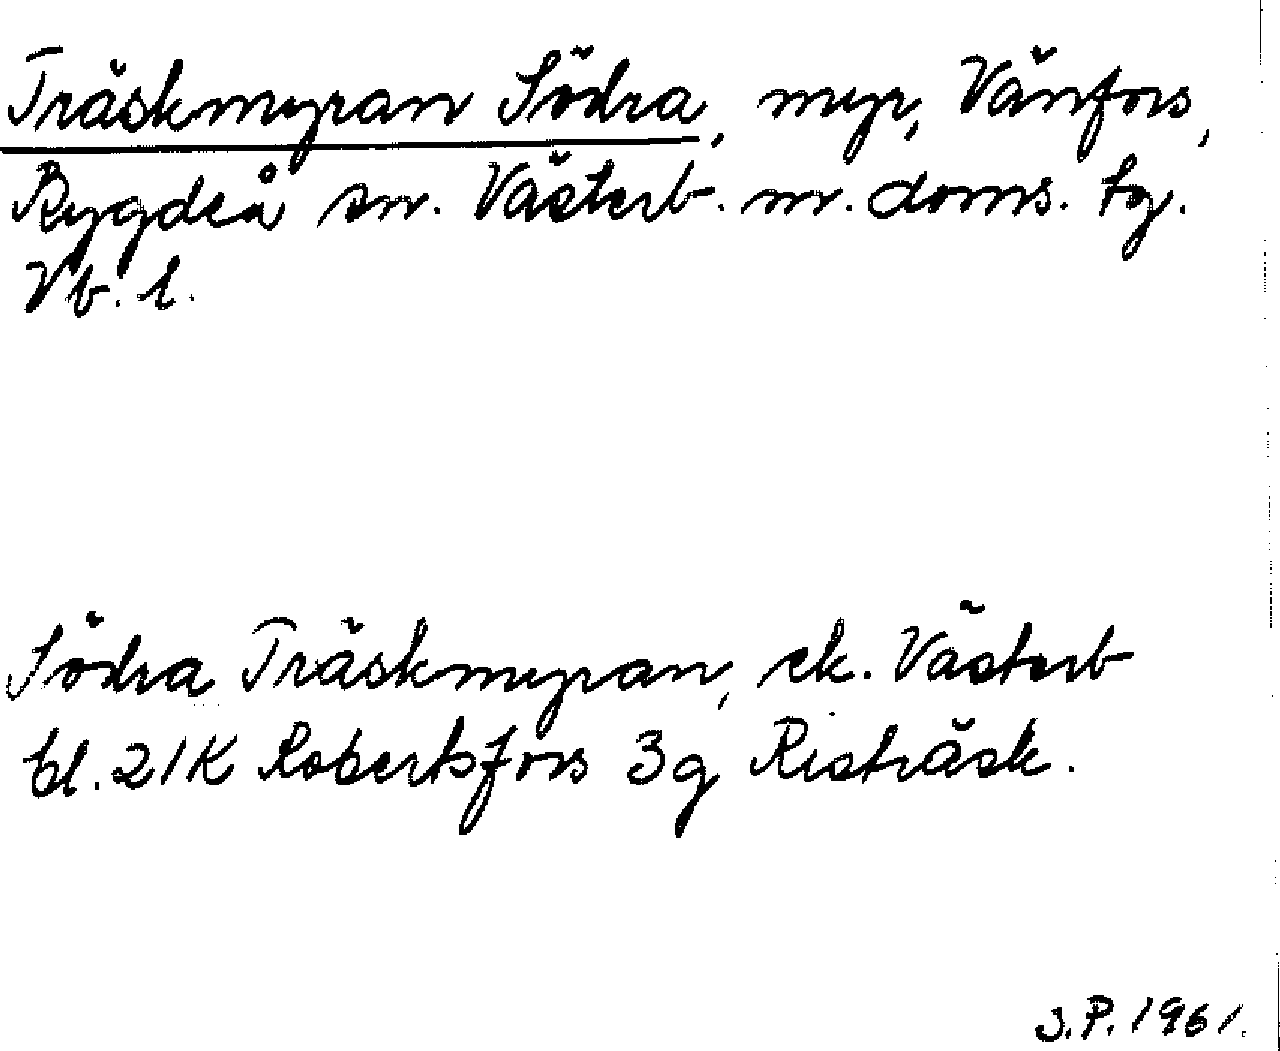 Träskmyran Södra, myr, Vänfors,
Bygdeå sn. Västerb. n. doms. tg.
Vb. l.
Södra Träskmyran, ek. Västerb
bl. 21K Robertsfors 3g Risträsk.
J.P. 1961.